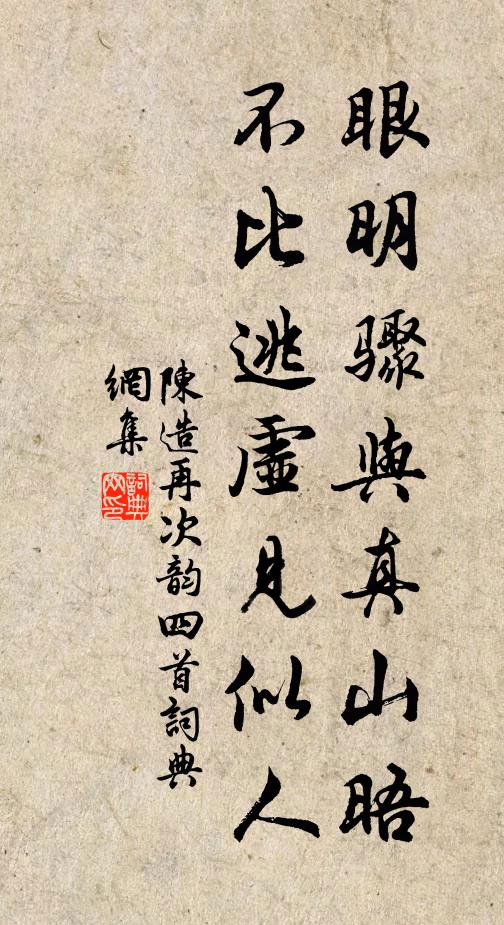 眼明驟與真山晤
不比逃虛見似人
陳造再次韵四首詞典
網集
詞典